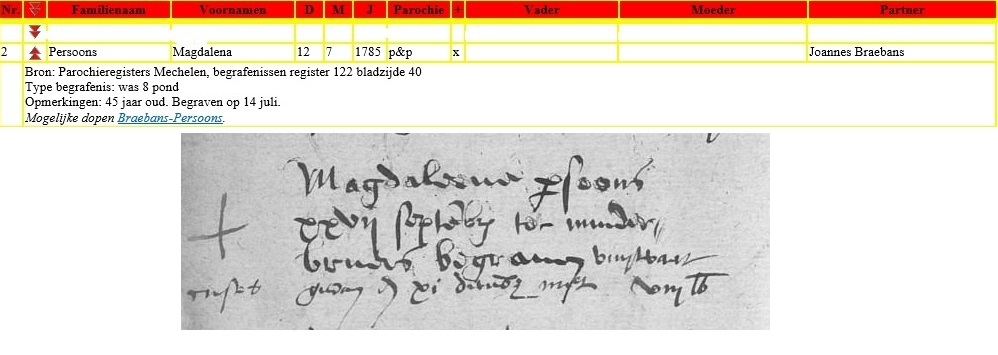 Nr. Familienaam Voornamen D M J Parochie + Vader Moeder Partner
2 Persoons Magdalena 12 7 1785 p&p x Joannes Braebans
Bron: Parochieregisters Mechelen, begrafenissen register 122 bladzijde 40
Type begrafenis: was 8 pond
Opmerkingen: 45 jaar oud. Begraven op 14 juli.
Mogelijke dopen Braebans-Persoons.
Magdaleene psoons
xxvij septēbʒ tot minder//
bruers begraven
xi met viij lb